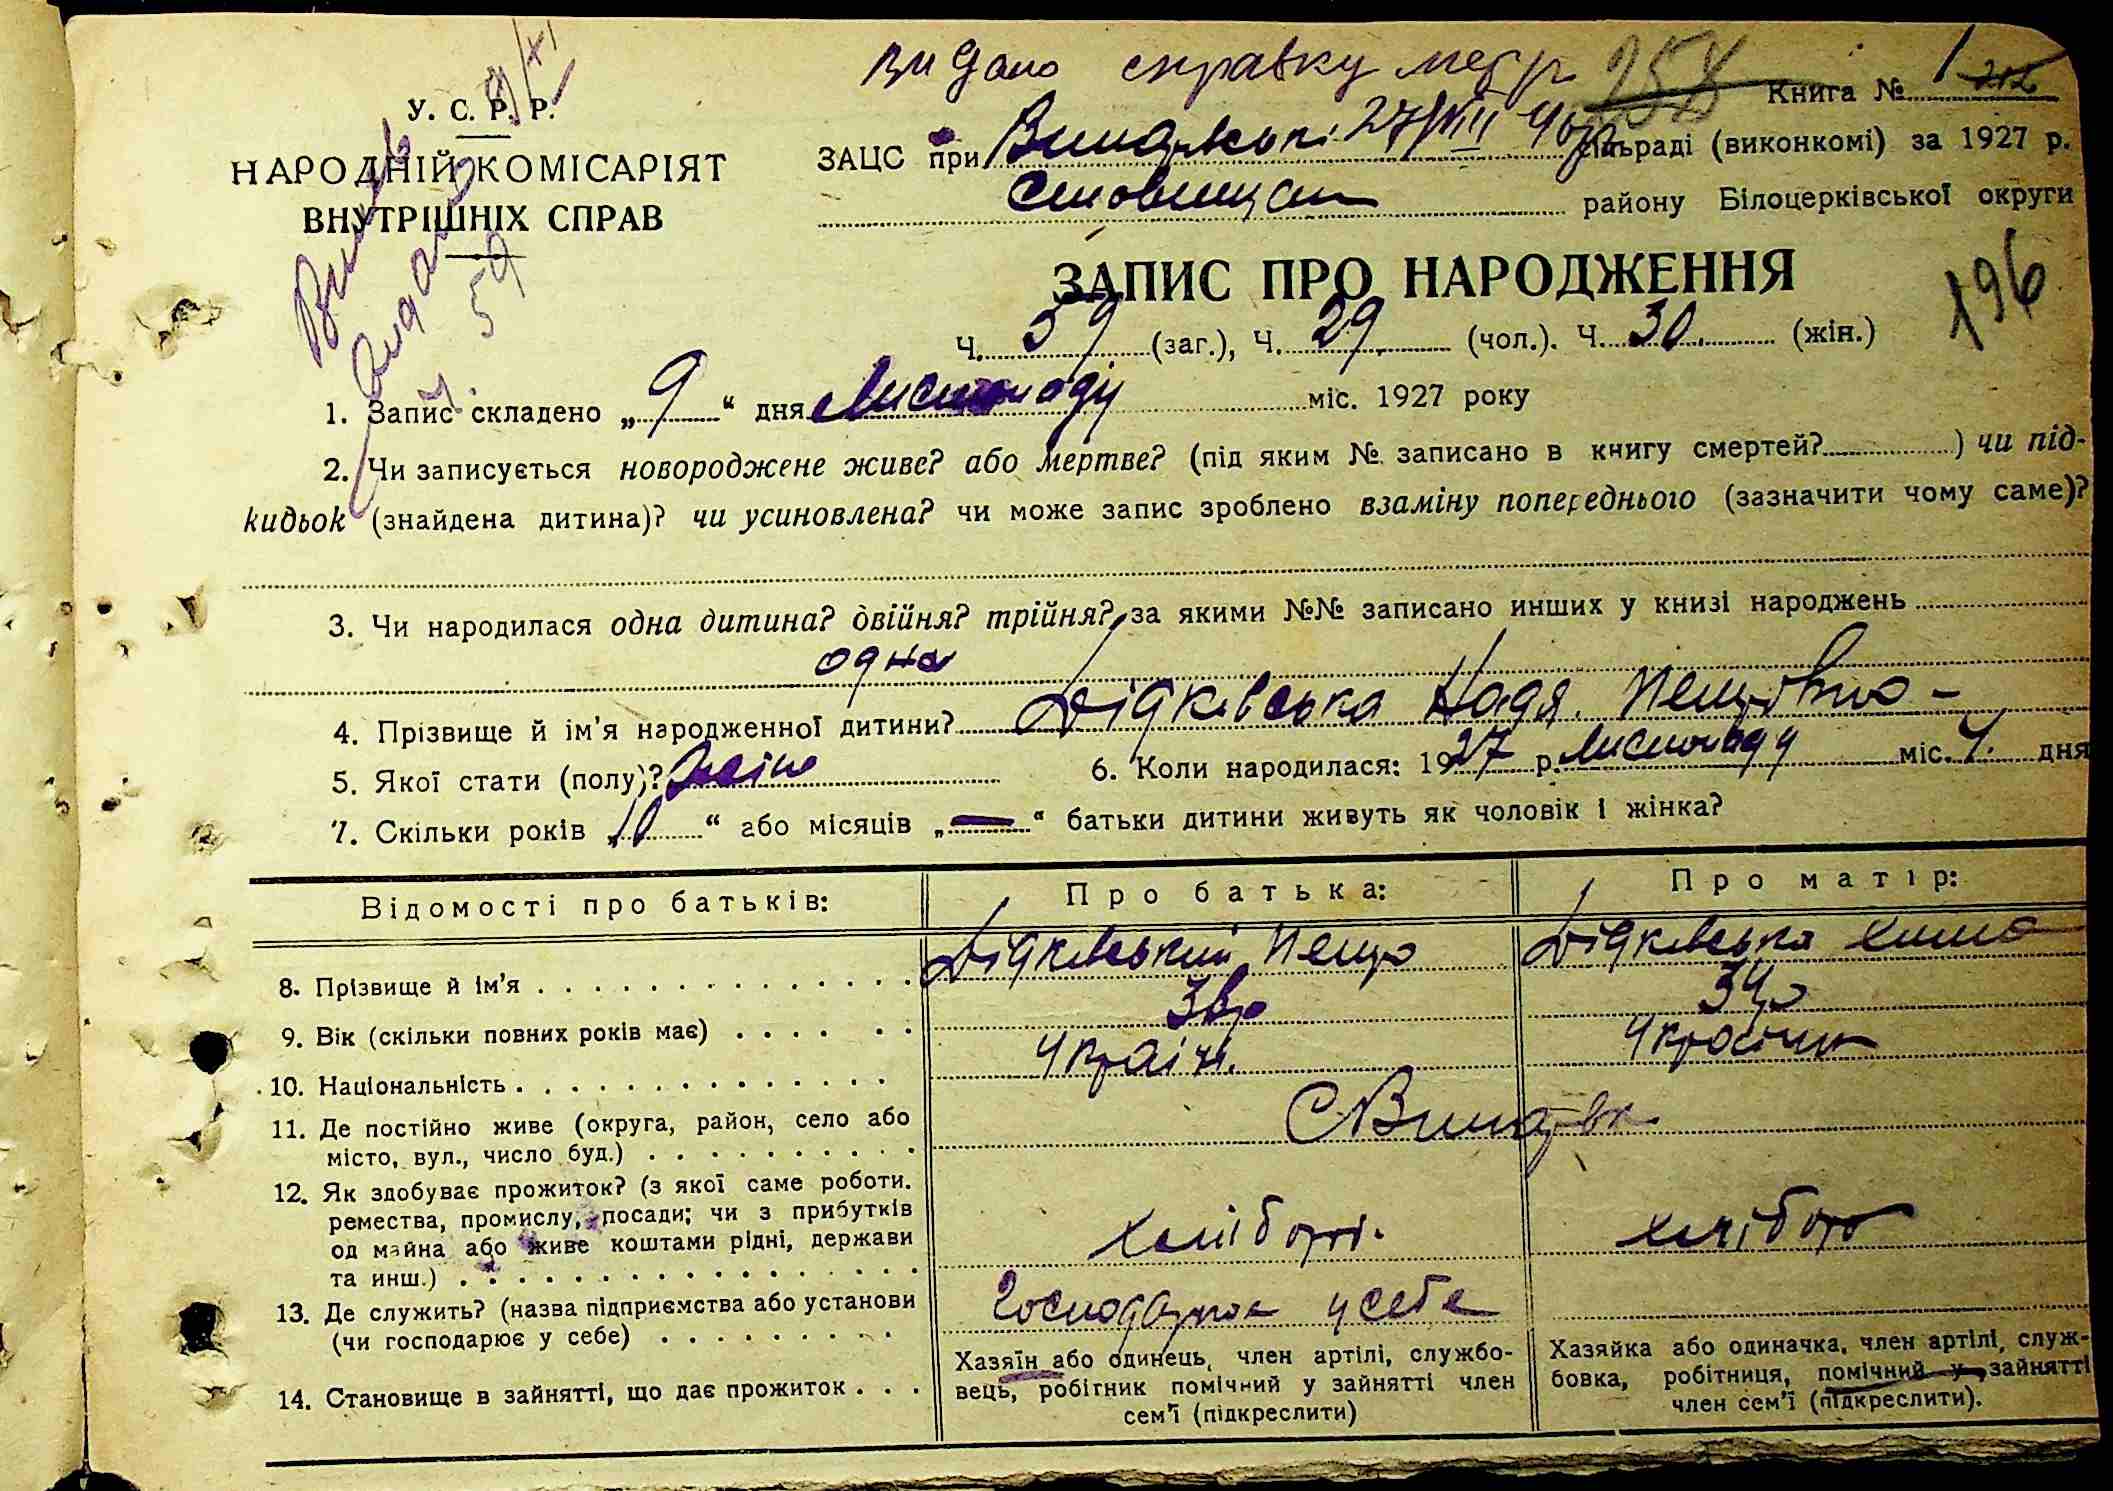 видано справку метр
У. С. Р. Р.
НАРОДНІЙ КОМІСАРІЯТ
ВНУТРІШНІХ СПРАВ
Книга № 1
ЗАЦС при 27/VIII сільраді (виконкомі) за 1927 р.
району Білоцерківської округи
ЗАПИС ПРО НАРОДЖЕННЯ
196
Ч. 59 (заг.), Ч. 29 (чол.). Ч. 30 (жін.)
1. Запис складено „ 9 “ дня Листопаду міс. 1927 року
2. Чи записується новороджене живе? або мертве? (під яким №. записано в книгу смертей? ) чи під-
кидьок (знайдена дитина)? чи усиновлена? чи може запис зроблено взаміну попереднього (зазначити чому саме)?
3. Чи народилася одна дитина? двійня? трійня? за якими №№ записано инших у книзі народжень
одна
4. Прізвище й ім’я народженної дитини? Дідківська Надя Петрівна –
5. Якої стати (полу)? жіно 6. Коли народилася: 1927 р. Листопаду міс. 4 дня
7. Скільки років „ 10 “ або місяців „ — “ батьки дитини живуть як чоловік і жінка?
Відомості про батьків: Про батька: Про матір:
8. Прізвище й ім’я Дідківський Петро Дідківська
9. Вік (скільки повних років має)
10. Національність Україн. Українк
11. Де постійно живе (округа, район, село або
місто, вул., число буд.)
12. Як здобуває прожиток? (з якої саме роботи.
ремества, промислу, посади; чи з прибутків
од майна або живе коштами рідні, держави
та инш.) хлібороб. хлібороб
13. Де служить? (назва підприємства або установи
(чи господарює у себе) Господарює у себе
14. Становище в зайнятті, що дає прожиток
Хазяїн або одинець, член артілі, службо-
вець, робітник помічний у зайнятті член
сем’ї (підкреслити)
Хазяйка або одиначка, член артілі, служ-
бовка, робітниця, помічний у зайнятті
член сем’ї (підкреслити).